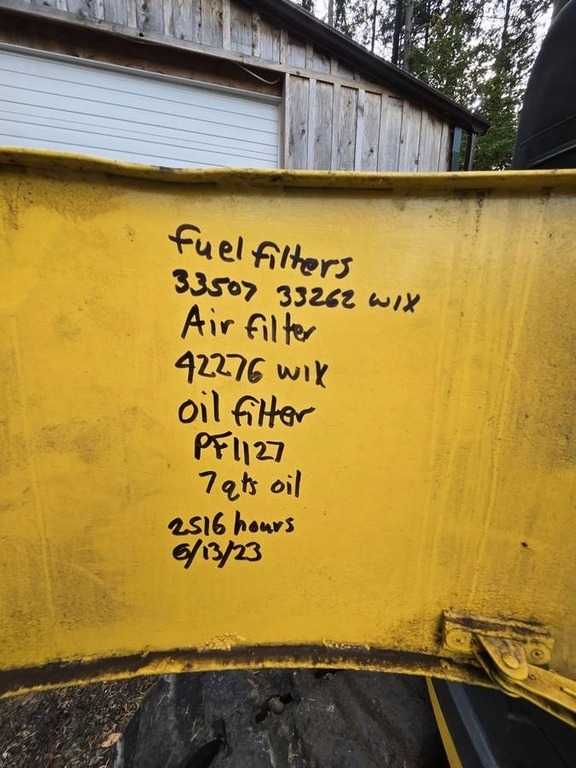 Fuel filters
33507 33262 WIX
Air filter
42276 WIX
oil filter
PF1127
7 qts oil
2516 hours
6/13/23